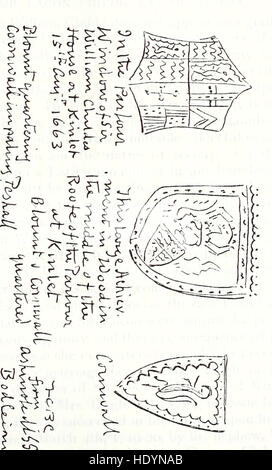 In the Parlour
Window of Sir
William Childes
House at Kinlet
15th Aug: 1663
Blount quartering
Cornwall impaling Peshall
This large Achiev-
-ment in Wood in
the middle of the
Roofe of the Parlour
at Kinlet
Blount & Cornwall
quartered
Cornwall
from
Bodleian
HDYNAB